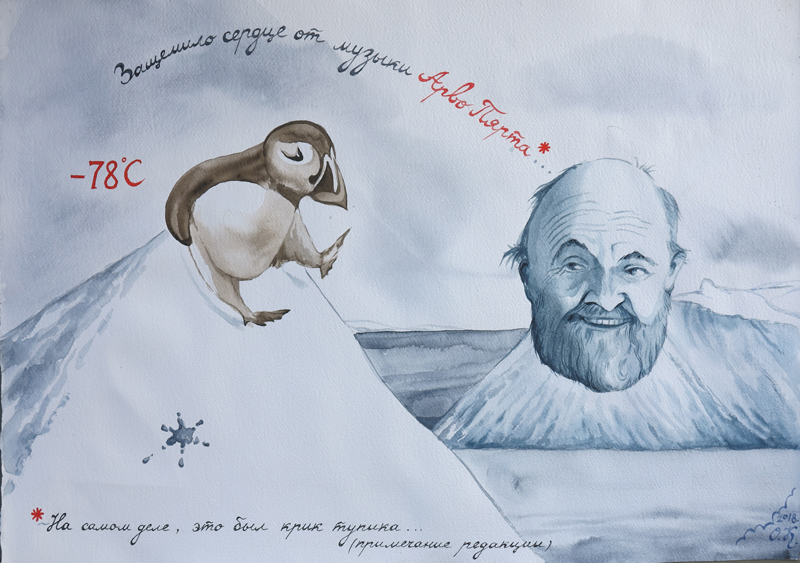 Защемило сердце от музыки Арво Пярта*...
-78°C
*На самом деле, это был крик тупика...
(примечание редакции)
2018
О.К.